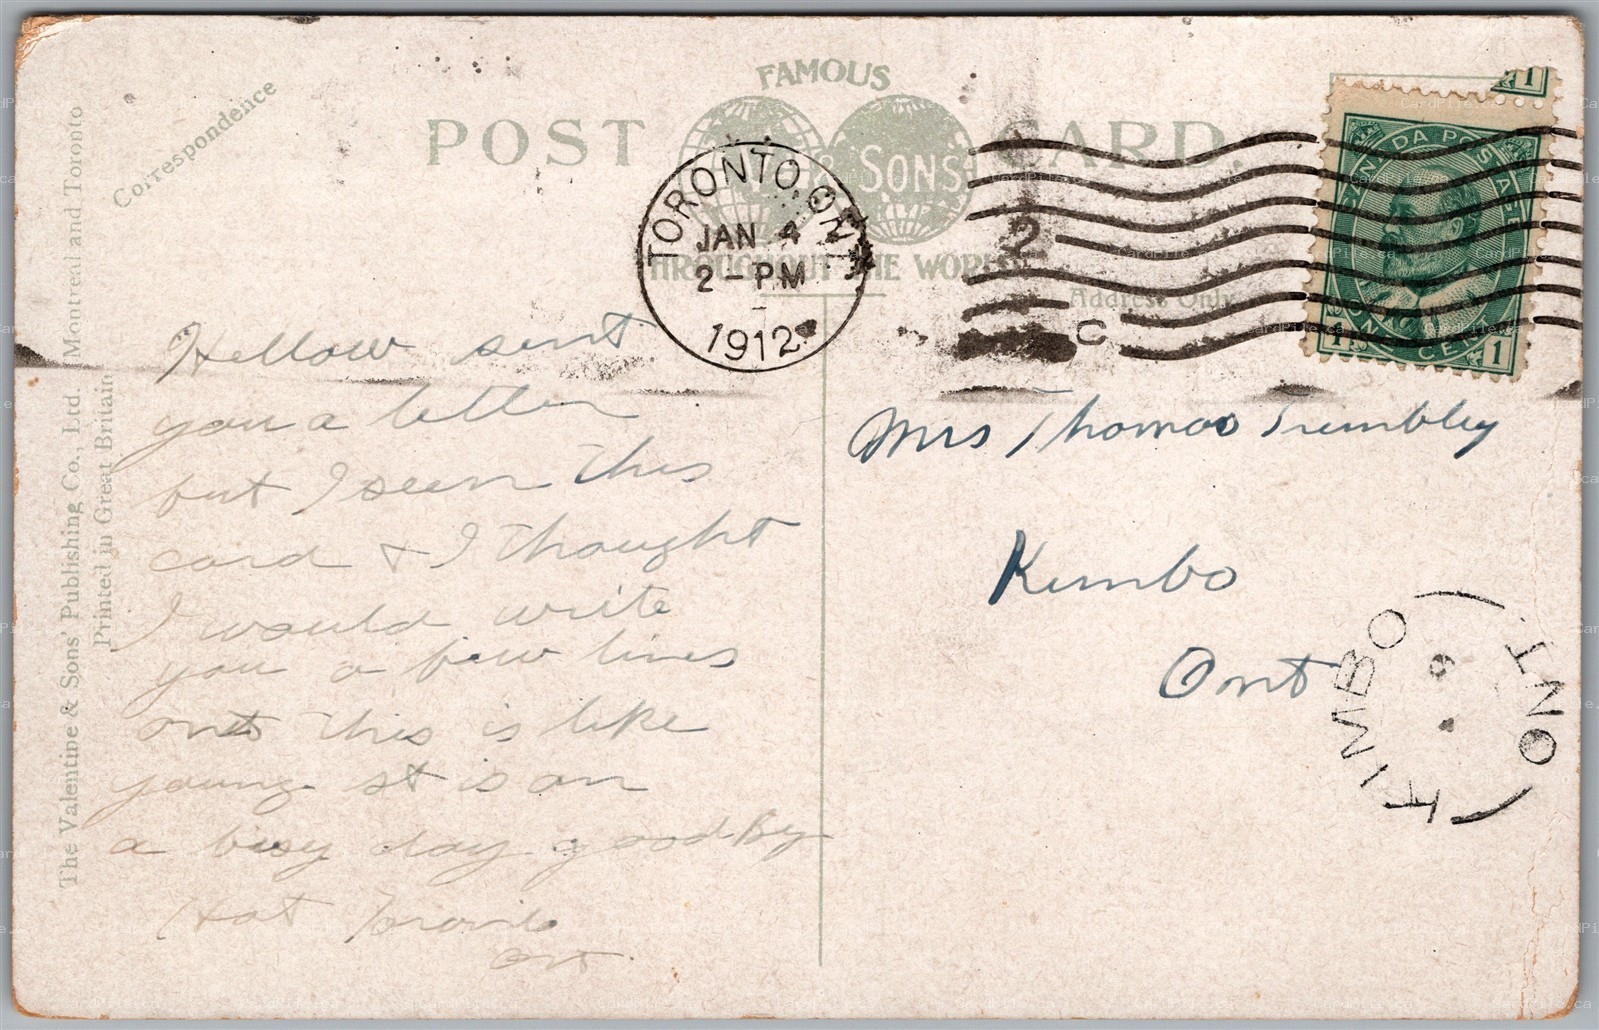 Correspondence
The Valentine & Sons' Publishing Co., Ltd. Montreal and Toronto
Printed in Great Britain
FAMOUS
POST CARD
& SONS'
THROUGHOUT THE WORLD
Address Only
TORONTO, ONT
JAN 4
2-PM
1912
2
C
CANADA POSTAGE
ONE CENT
1 1
1
Hellow sent
you a letter
but I seen this
card & I thought
I would write
you a few lines
this is like
young st is on
a bisy day good By
Toronto
Ont
Mrs Thomas Trumbley
Kimbo
Ont
KIMBO
ONT.